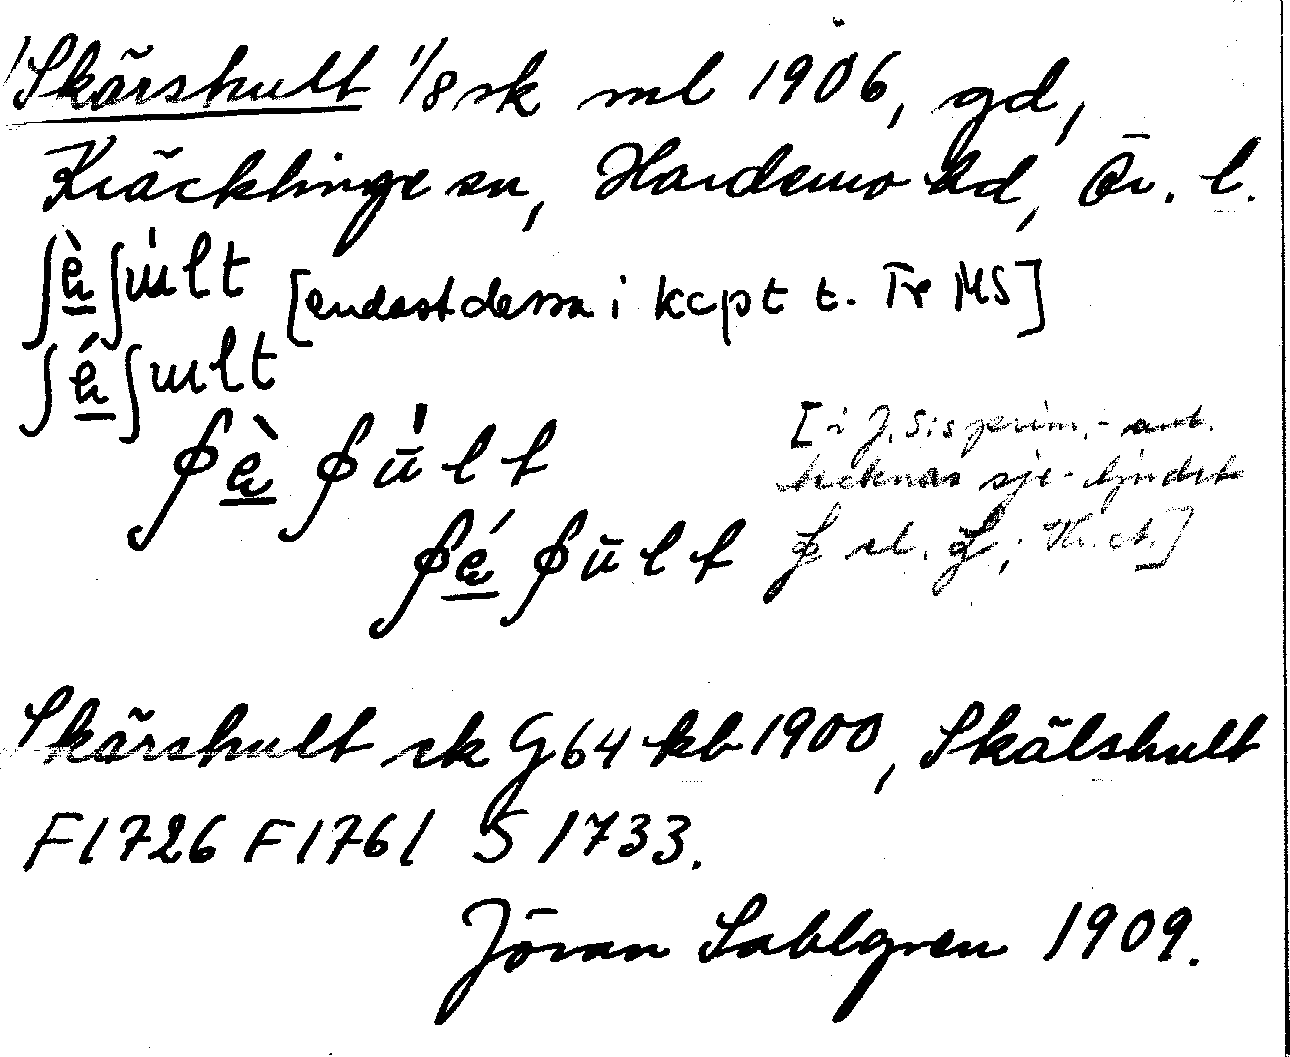 Skärshult 1/8 sk ml 1906, gd,
Kräcklinge sn, Hardemo hd, Ör. l.
ʃὲʃɯ̍lt [endast dessa i kcpt t. Fr MS]
ʃéʃɯlt
[i J. S:s prim.-ant.
tecknas sje-ljudet
el.
Skärshult sk G64 kb 1900, Skälshult
F1726 F1761 S 1733.
Jöran Sahlgren 1909.